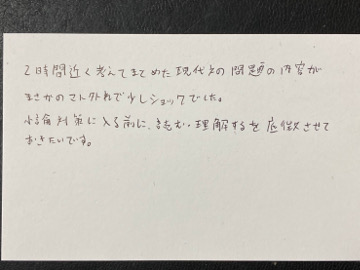 2時間近く考えてまとめた現代文の問題の内容が
まさかのマト外れで少しショックでした。
小論対策に入る前に、読む・理解するを徹底させて
おきたいです。